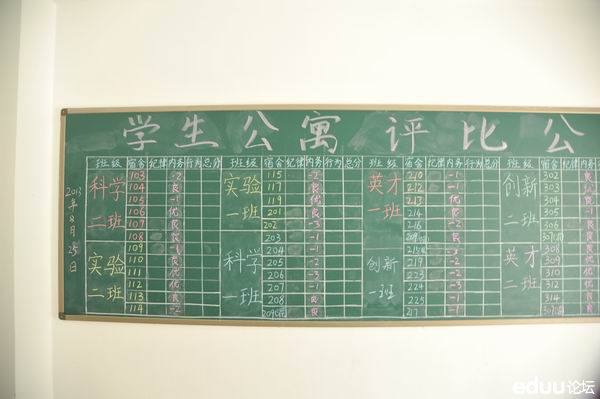 学生公寓评比公
班级 宿舍 纪律 内务 行为 总分 班级 宿舍 纪律 内务 行为 总分 班级 宿舍 纪律 内务 行为 总分 班级 宿舍 纪律 内务
科学二班 103 -2 实验一班 115 -2 英才一班 210 -1 创新二班 302
104 良 117 良 212 -1 303
105 -1 119 优 213 优 304
106 优 201 良 214 305
107 良 202 -3 216 -2 306
108 良 科学一班 203 -1
实验二班 109 -1 204 -1 创新一班 英才二班 308
110 良 205 -2 219 -2 309
111 优 206 -3 223 -2 310
112 优 207 -1 224 -3 312
113 良 208 良 225 -1 314
114 -2 良 217
2013年8月25日
eduu论坛